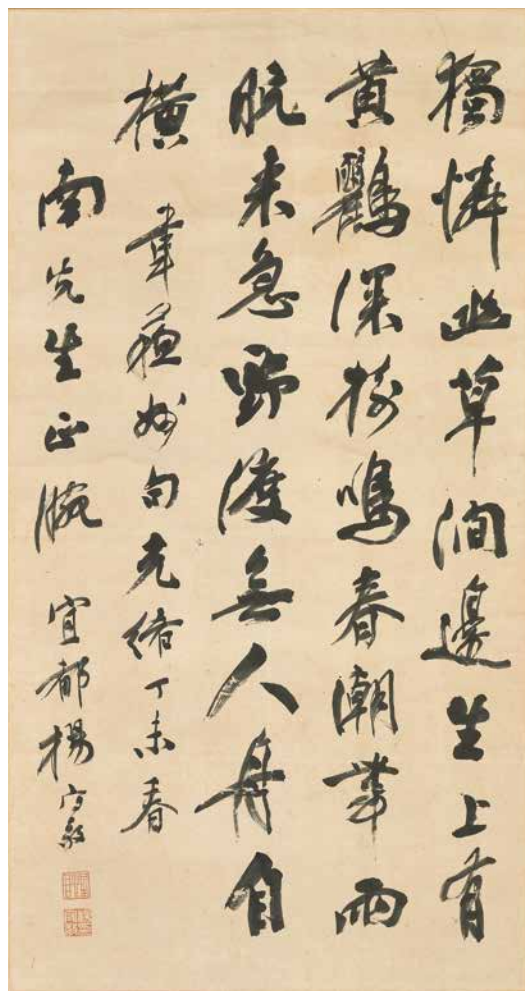 獨憐幽草澗邊生上有
黃鸝深樹鳴春潮帶雨
晚来急野渡無人舟自
橫 韋蘇州句光緒丁未春
南先生正腕 宜都楊守敬